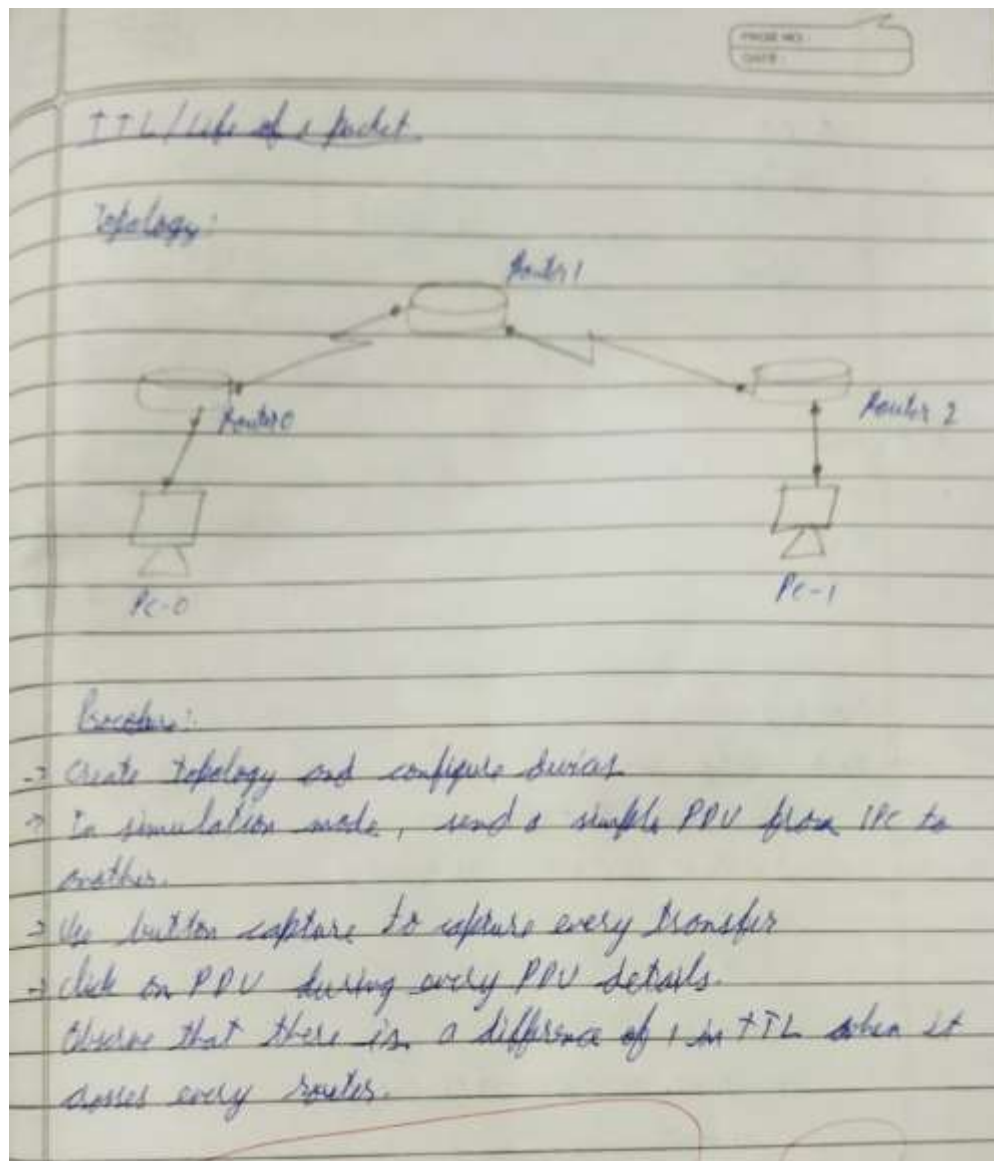 PAGE NO :
DATE :
TTL / Life of a Packet.
Topology:
Router 1
Router 0
Router 2
PC-0
PC-1
Procedure:
-> Create topology and configure devices
-> In simulation mode, send a simple PDU from 1PC to
another.
-> Use button capture to capture every transfer
-> Click on PDU during every PDU details.
Observe that there is a difference of 1 in TTL when it
crosses every router.